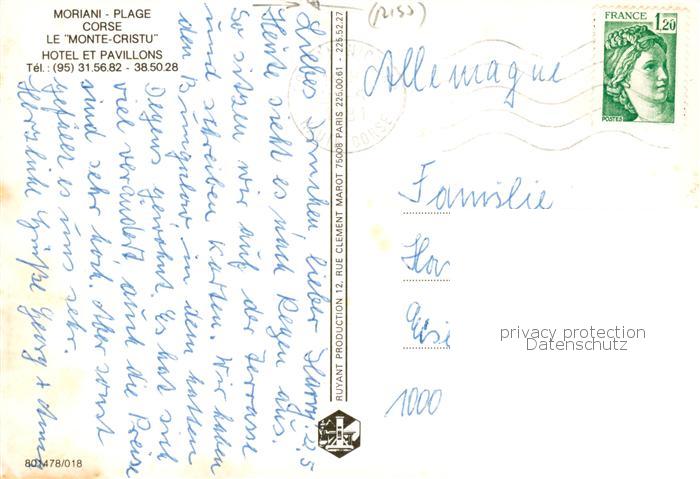 MORIANI - PLAGE
CORSE
LE "MONTE-CRISTU"
HOTEL ET PAVILLONS
Tél. : (95) 31.56.82 - 38.50.28
(RISS)
FRANCE
1,20
POSTES
Allemagne
Familie
1000
privacy protection
Datenschutz
Liebes lieber 2.5
Heute sieht es nach Regen aus.
So sitzen wir auf der Terrasse
und schreiben Karten. Wir haben
den Bungalow in dem hatten
Degens gewohnt. Es hat sich
viel verändert auch die Preise
sind sehr hoch. Aber sonst
gefällt es uns sehr.
Herzliche Grüße Georg + Anni
RUYANT PRODUCTION 12, RUE CLEMENT MAROT 75008 PARIS 225.00.61 - 225.52.27
801478/018